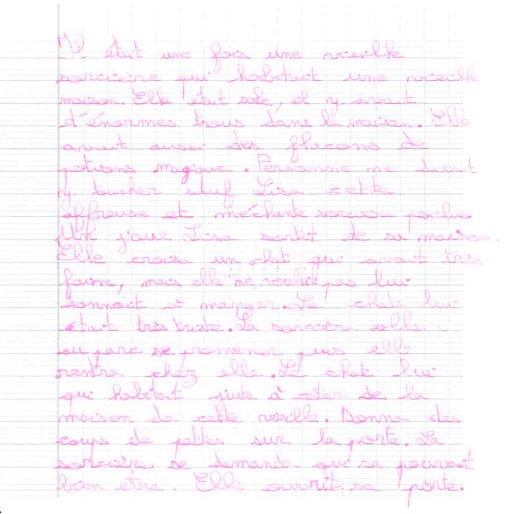 Il était une fois une vieille
sorcière qui habitait une vieille
maison. Elle était sale, il y avait
d'énormes trous dans la maison. Elle
avait aussi des flacons de
potions magique. Personne ne devait
y toucher sauf Lisa cette
affreuse et méchante sorcière poilue
Un jour Lisa sortit de sa maison.
Elle croisa un chat qui avait très
faime, mais elle ne voulut pas lui
donnait à manger. Le chat lui
était très triste. La sorcière alla
au parc se promener puis elle
rentra chez elle. Le chat lui
qui habitait juste à côter de la
maison de cette vieille. Donna des
coups de pattes sur la porte. La
sorcière se demanda qui sa pouvait
bien être. Elle ouvrit sa porte.